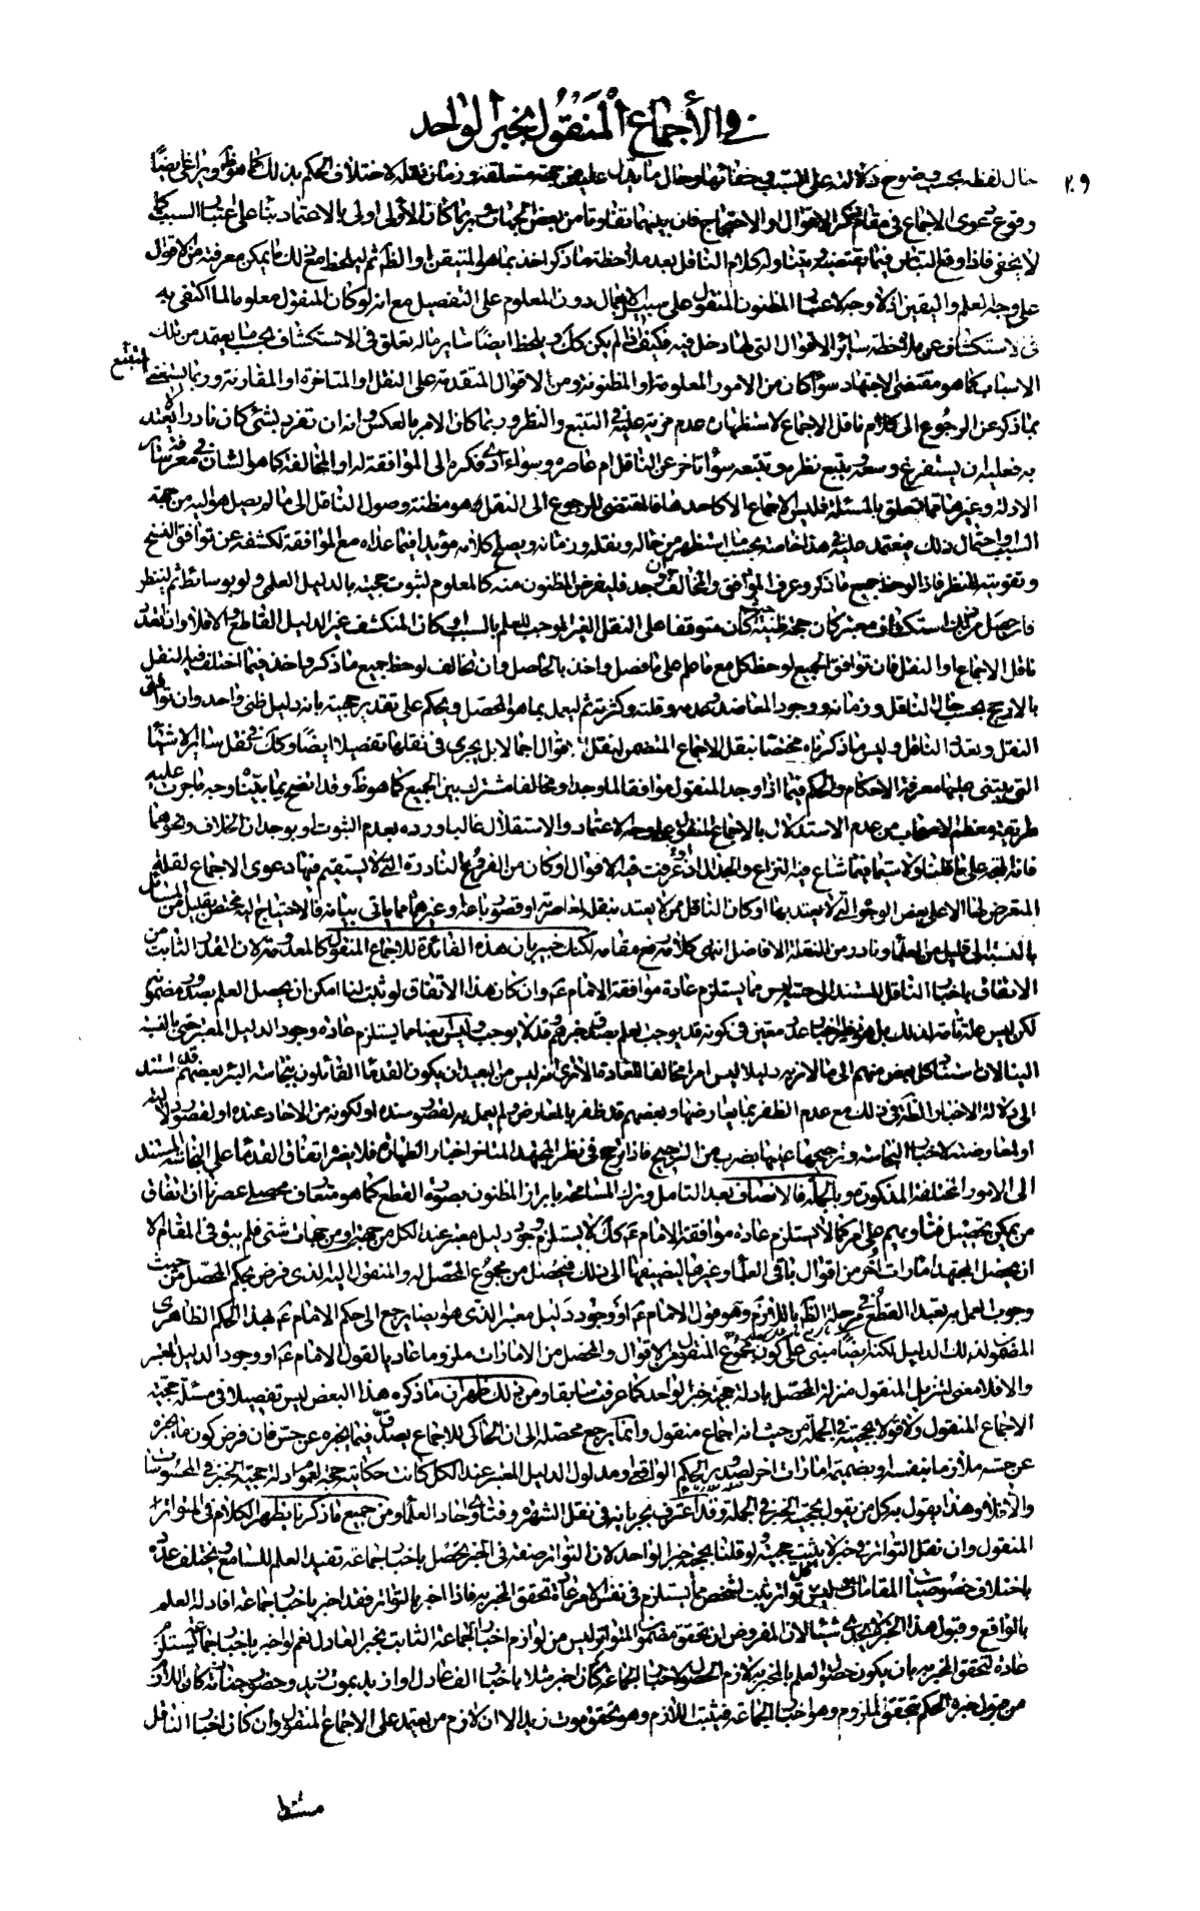 في الأجماع المنقول بخبر الواحد
٢٩
حال لفظه بحسب وضوح دلالته على السبب وخفائها وحال ما يدل عليه من جهة متعلقه وزمان نقله لاختلاف الحكم بذلك كما هو ظاهر ويراعى ايضا
وقوع دعوى الاجماع في مقام ذكر الاقوال او الاحتجاج فان بينهما تفاوتا من بعض الجهات وربما كان الأولى اولى بالاعتماد بناء على اعتبار السبب كما
لا يخفى فاذا وقع التباس فيما يقتضيه ويتناوله كلام الناقل بعد ملاحظة ما ذكر اخذ بما هو المتيقن او الظاهر ثم ليلحظ مع ذلك ما يمكن معرفته من الاقوال
على وجه العلم واليقين اذ لا وجه لاعتبار المظنون المنقول على سبيل الاجمال دون المعلوم على التفصيل مع انه لو كان المنقول معلوما لما اكتفى به
في الاستكشاف عن ملاحظة سائر الاقوال التي لها دخل فيه فكيف اذا لم يكن كك ويلحظ ايضا سائر ما له تعلق في الاستكشاف بحسب ما يعتمد من تلك
الاسباب كما هو مقتضى الاجتهاد سواء كان من الامور المعلومة او المظنونة ومن الاقوال المتقدمة على النقل او المتاخرة او المقارنة وربما يستغنى المتتبع
بما ذكر عن الرجوع الى كلام ناقل الاجماع لاستظهاره عدم مزية عليه في التتبع والنظر وربما كان الامر بالعكس وانه ان تفرد بشئ كان نادرا لا يعتد
به فعليه ان يستفرغ وسعه ويتبع نظره وتتبعه سواء تاخر عن الناقل ام عاصره وسواء ادى فكره الى الموافقة له او المخالفة كما هو الشان في معرفة سائر
الادلة وغيرها مما تعلق بالمسئلة فليس الاجماع الا كاحدها فالمقتضى للرجوع الى النقل هو مظنة وصول الناقل الى ما لم يصل هو اليه من جهة
السبب او احتمال ذلك فيعتمد عليه في هذا خاصة بحسب ما استظهر من حاله ونقله وزمانه ويصلح كلامه مؤيدا فيما عداه مع الموافقة لكشفه عن توافق النسخ
وتقويته للنظر فاذا لوحظ جميع ما ذكر وعرف الموافق والمخالف ان وجد فليفرض المظنون منه كالمعلوم لثبوت حجيته بالدليل العلمي ولو بوسائط ثم لينظر
فان حصل من ذلك استكشاف معتبر كان حجة ظنية حيث كان متوقفا على النقل الغير الموجب للعلم بالسبب او كان المنكشف غير الدليل القاطع والا فلا وان تعدد
ناقل الاجماع او النقل فان توافق الجميع لوحظ كل مع ما علم على ما فصل واخذ بالحاصل وان تخالف لوحظ جميع ما ذكر واخذ فيما اختلف فيه النقل
بالارجح بحسب حال الناقل وزمانه ووجود المعاضد وعدمه وقلته وكثرته ثم ليعمل بما هو المحصل ويحكم على تقدير حجيته بانه دليل ظني واحد وان توافق
النقل وتعدد الناقل وليس ما ذكرناه مختصا بنقل الاجماع المتضمن لنقل الاقوال اجمالا بل يجري في نقلها تفصيلا ايضا وكك في نقل سائر الاشياء
التي يبتنى عليها معرفة الاحكام والحكم فيما اذا وجد المنقول موافقا لما وجد او مخالفا مشترك بين الجميع كما هو ظاهر وقد اتضح بما بيناه وجه ما جرت عليه
طريقة معظم الاصحاب من عدم الاستدلال بالاجماع المنقول على وجه الاعتماد والاستقلال غالبا ورده بعدم الثبوت او بوجدان الخلاف ونحوهما
فانه المتجه على ما قلنا ولا سيما فيما شاع فيه النزاع والجدال او عرفت فيه الاقوال او كان من الفروع النادرة التي لا يستقيم فيها دعوى الاجماع لقلة
المتعرض لها الا على بعض الوجوه التي لا يعتد بها او كان الناقل ممن لا يعتد بنقله لمعاصرته او قصور باعه او غيرهما مما ياتي بيانه فالاحتياج اليه مختص بقليل من المسائل
بالنسبة الى قليل من العلماء ونادر من النقلة الافاضل انتهى كلامه رفع مقامه لكنك خبير بان هذه الفائدة للاجماع المنقول كالمعدومة لان القدر الثابت من
الاتفاق باخبار الناقل المستند الى حسه ليس مما يستلزم عادة موافقة الامام ع وان كان هذا الاتفاق لو ثبت لنا امكن ان يحصل العلم بصدور مضمونه
لكن ليس علة تامة لذلك بل هو نظير اخبار عدد معين في كونه قد يوجب العلم بصدق خبرهم وقد لا يوجب وليس ايضا مما يستلزم عادة وجود الدليل المعتبر حتى بالنسبة
الينا لان استناد كل بعض منهم الى ما لا نراه دليلا ليس امرا مخالفا للعادة الا ترى انه ليس من البعيد ان يكون القدماء القائلون بنجاسة البئر بعضهم قد استند
الى دلالة الاخبار الظاهرة في ذلك مع عدم الظفر بما يعارضها وبعضهم قد ظفر بالمعارض ولم يعمل به لقصور سنده او لكونه من الاحاد عنده او لقصور دلالته
او لمعارضته لاخبار النجاسة وترجيحها عليها بضرب من الترجيح فاذا ترجح في نظر المجتهد المتاخر اخبار الطهارة فلا يضره اتفاق القدماء على النجاسة المستند
الى الامور المختلفة المذكورة وبالجملة فالانصاف بعد التامل وترك المسامحة بابراز المظنون بصورة القطع كما هو متعارف محصلي عصرنا ان اتفاق
من يمكن تحصيل فتاويهم على امر كما لا يستلزم عادة موافقة الامام ع كك لا يستلزم وجود دليل معتبر عند الكل من جهة او من جهات شتى فلم يبق في المقام الا
ان يحصل المجتهد امارات اخر من اقوال باقي العلماء وغيرها ليضيفها الى ذلك فيحصل من مجموع المحصل له والمنقول اليه الذي فرض بحكم المحصل من حيث
وجوب العمل به تعبدا القطع في مرحلة الظاهر باللازم وهو قول الامام ع او وجود دليل معتبر الذي هو ايضا يرجع الى حكم الامام ع بهذا الحكم الظاهرى
المضمون لذلك الدليل لكنه ايضا مبنى على كون مجموع المنقول من الاقوال والمحصل من الامارات ملزوما عاديا لقول الامام ع او وجود الدليل المعتبر
والا فلا معنى لتنزيل المنقول منزلة المحصل بادلة حجية خبر الواحد كما عرفت سابقا ومن ذلك ظهر ان ما ذكره هذا البعض ليس تفصيلا في مسئلة حجية
الاجماع المنقول ولا قولا بحجيته في الجملة من حيث انه اجماع منقول وانما يرجع محصله الى ان الحاكي للاجماع يصدق فيما يخبره عن حس فان فرض كون ما يخبره
عن حسه ملازما بنفسه او بضميمة امارات اخر لصدور الحكم الواقعي او مدلول الدليل المعتبر عند الكل كانت حكايته حجة لعموم ادلة حجية الخبر في المحسوسات
والا فلا وهذا يقول به كل من يقول بحجية الخبر في الجملة وقد اعترف بجريانه في نقل الشهرة وفتاوى احاد العلماء ومن جميع ما ذكرنا يظهر الكلام في المتواتر
المنقول وان نقل التواتر في خبر لا يثبت حجيته ولو قلنا بحجية خبر الواحد لان التواتر صفة في الخبر تحصل باخبار جماعة تفيد العلم للسامع ويختلف عدده
باختلاف خصوصيات المقامات وليس كل تواتر ثبت لشخص مما يستلزم في نفس الامر عادة تحقق المخبر به فاذا اخبر بالتواتر فقد اخبر باخبار جماعة افاد له العلم
بالواقع وقبول هذا الخبر لا يجدى شيئا لان المفروض ان تحقق مضمون المتواتر ليس من لوازم اخبار الجماعة الثابت بخبر العادل نعم لو اخبر باخبار جماعة يستلزم
عادة لتحقق المخبر به بان يكون حصول العلم بالمخبر به لازم الحصول لاخبار الجماعة كان اخبر مثلا باخبار الف عادل او ازيد بموت زيد وحضور جنازته كان اللازم
من قبول خبره الحكم بتحقق الملزوم وهو اخبار الجماعة فيثبت اللازم وهو تحقق موت زيد الا ان لازم من يعتمد على الاجماع المنقول وان كان اخبار الناقل
مستندا